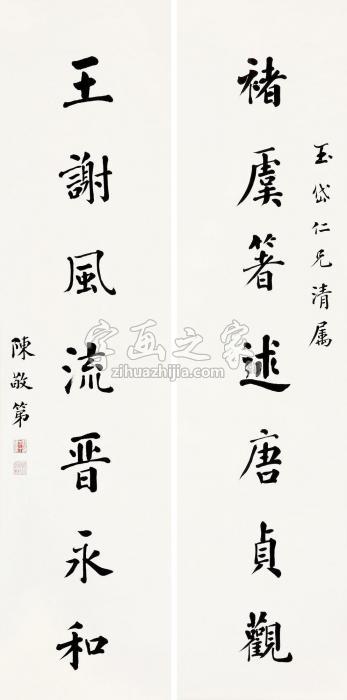 玉岱仁兄清属
褚虞箸述唐貞觀
王謝風流晉永和
陳敬第
字画之家
zihuazhijia.com